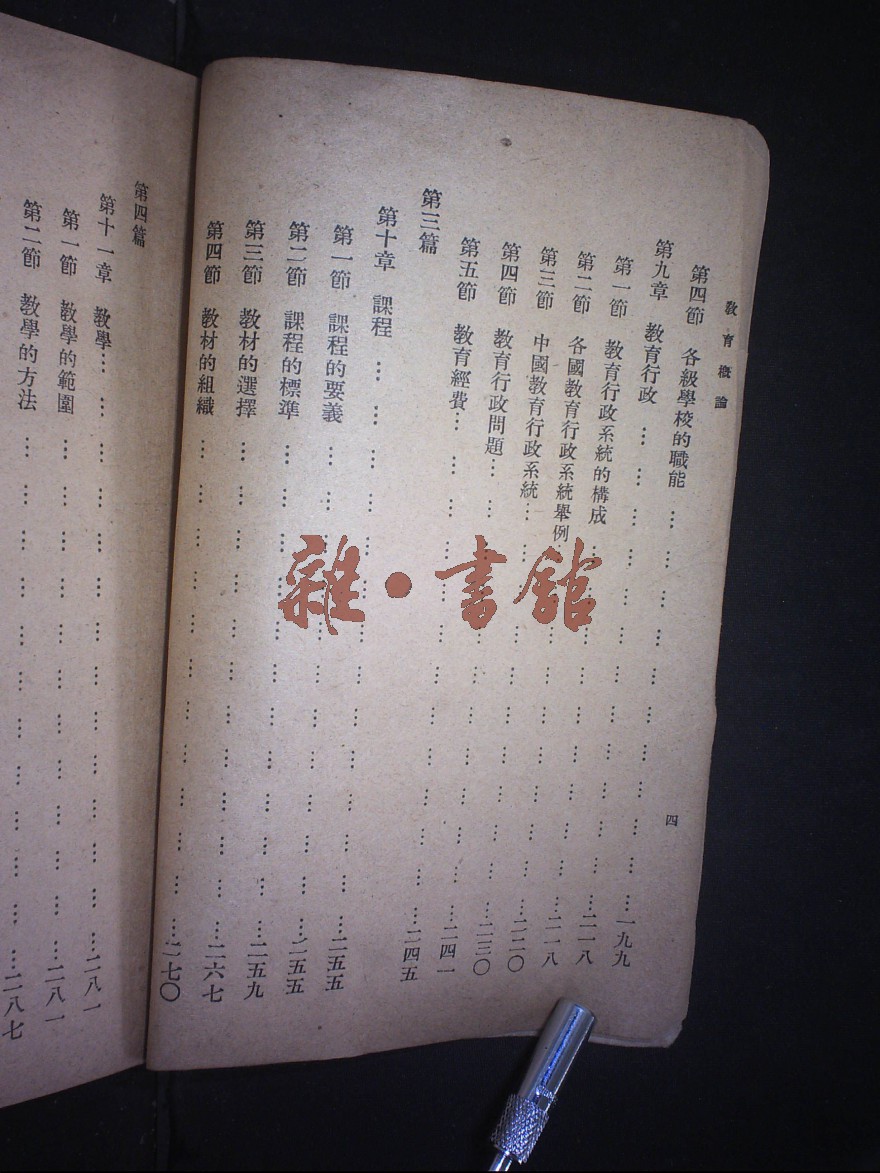 教育概論
四
第四節 各級學校的職能 … … … … … … … … … 一九九
第九章 教育行政 … … … … … … … … … … … 二一八
第一節 教育行政系統的構成 … … … … … … … … 二一八
第二節 各國教育行政系統舉例 … … … … … … … 二二〇
第三節 中國教育行政系統 … … … … … … … … … 二三〇
第四節 教育行政問題 … … … … … … … … … … 二四一
第五節 教育經費 … … … … … … … … … … … 二四五
第三篇
第十章 課程 … … … … … … … … … … … … 二五五
第一節 課程的要義 … … … … … … … … … … 二五五
第二節 課程的標準 … … … … … … … … … … 二五九
第三節 教材的選擇 … … … … … … … … … … 二六七
第四節 教材的組織 … … … … … … … … … … 二七〇
第四篇
第十一章 教學 … … … … … … … … … … … … 二八一
第一節 教學的範圍 … … … … … … … … … … 二八一
第二節 教學的方法 … … … … … … … … … … 二八七
雜·書館